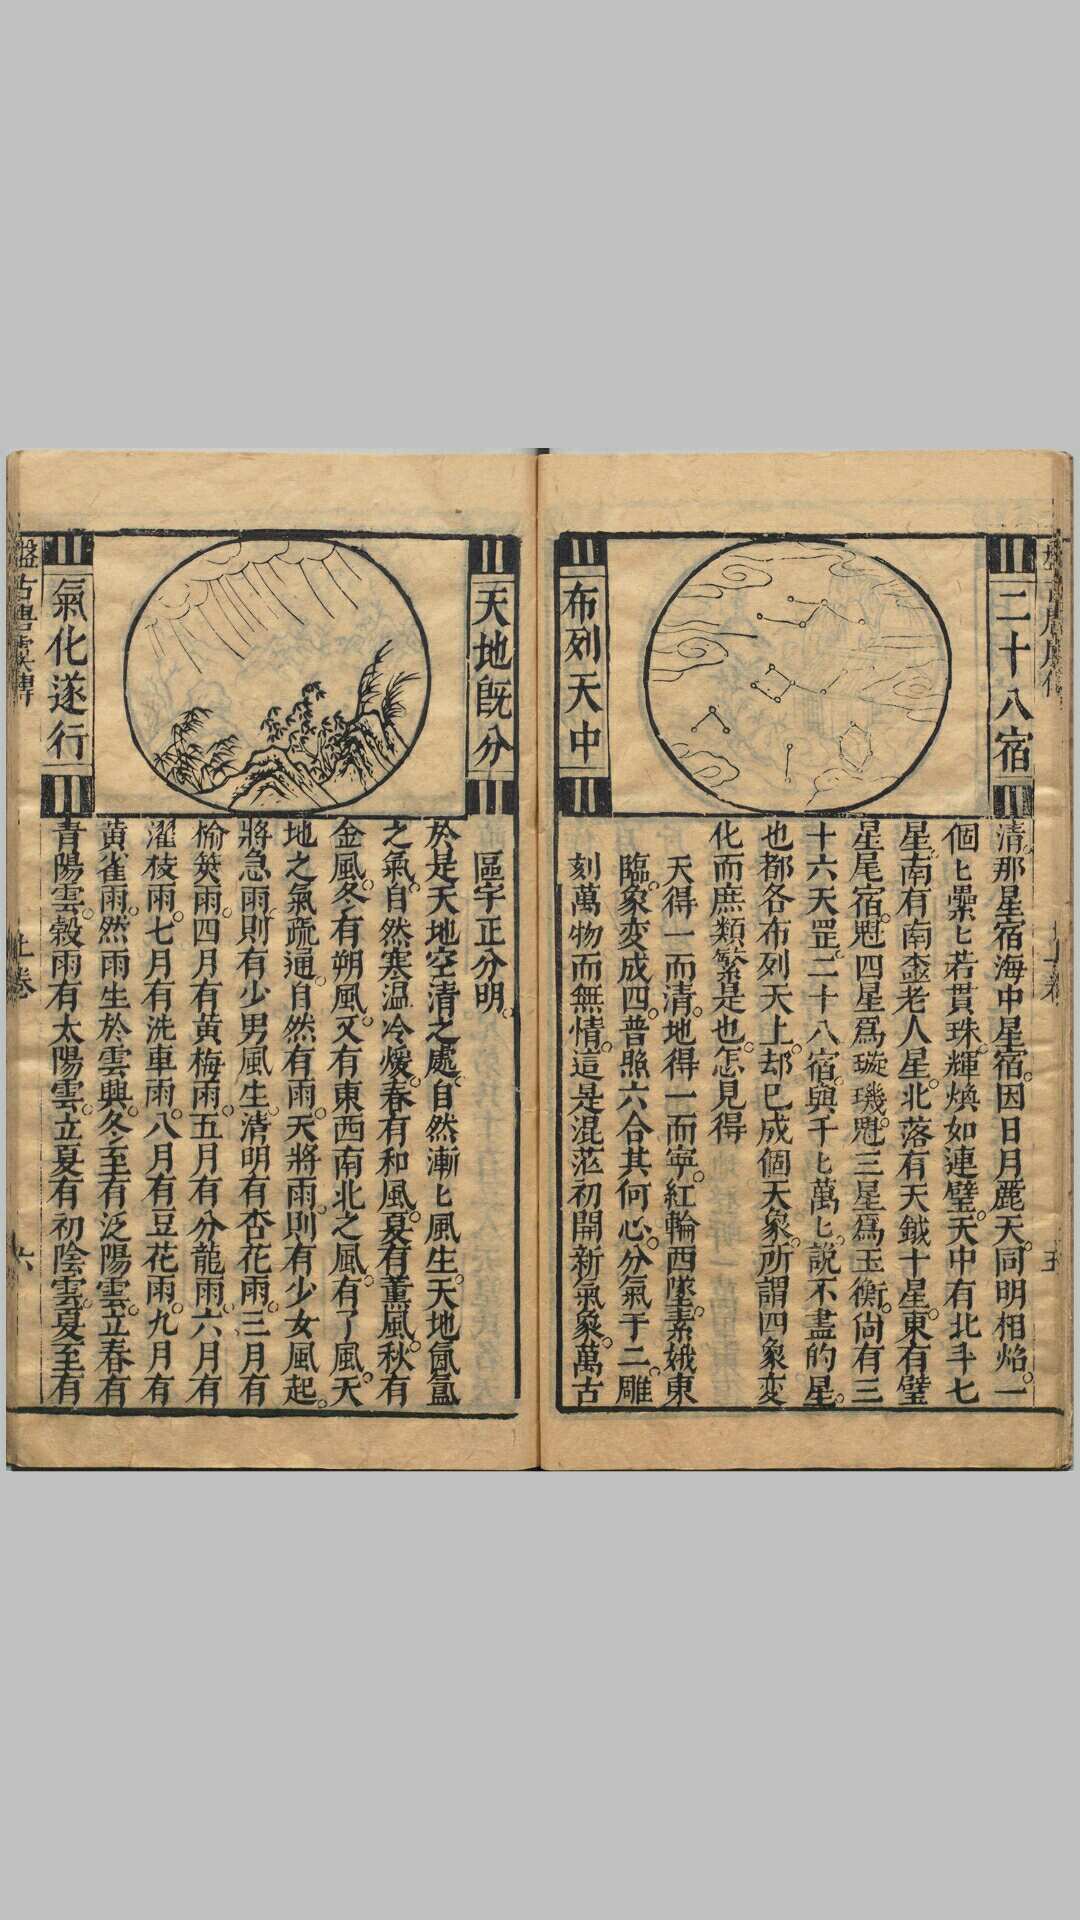 二十八宿
布列天中
清。那星宿海中星宿。因日月麗天。同明相焰。一
個匕纍匕若貫珠。輝煥如連璧。天中有北斗七
星。南有南壺老人星。北落有天鉞十星。東有璧
星尾宿。魁四星爲璇璣。魁三星爲玉衡。尙有三
十六天罡。二十八宿。與千匕萬匕說不盡的星。
也都各布列天上。却已成個天象。所謂四象变
化而庶類繁是也。怎見得
天得一而清。地得一而寧。紅輪西墜。素娥東
臨。象变成四。普照六合其何心。分氣于二。雕
刻萬物而無情。這是混茫初開新氣象。萬古
天地旣分
氣化遂行
區宇正分明。
於是天地空清之處。自然漸匕風生。天地氤氳
之氣。自然寒温冷煖。春有和風。夏有薰風。秋有
金風。冬有朔風。又有東西南北之風。有了風。天
地之氣疏通。自然有雨。天將雨。則有少女風起。
將急雨。則有少男風生。清明有杏花雨。三月有
榆莢雨。四月有黄梅雨。五月有分龍雨。六月有
濯枝雨。七月有洗車雨。八月有豆花雨。九月有
黄雀雨。然雨生於雲興。冬至有泛陽雲。立春有
青陽雲。穀雨有太陽雲。立夏有初陰雲。夏至有
上卷
六